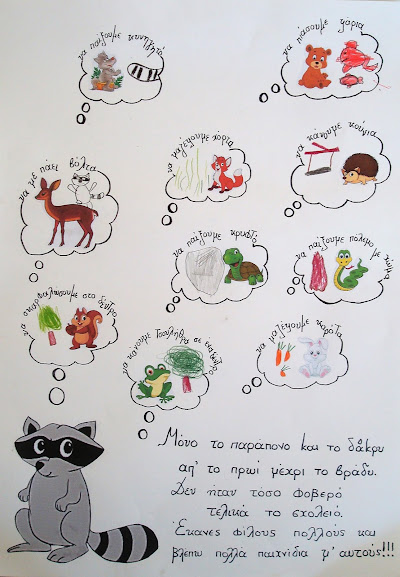 να παίξουμε κυνηγητό
να πιάσουμε ψάρια
να με πάει βόλτα
να μαζέψουμε χόρτα
να κάνουμε κούνια
να παίξουμε κρυφτό
να παίξουμε πόλεμο με
να σκαρφαλώσουμε στο δέντρο
να κάνουμε τσουλήθρα σε
να μαζέψουμε καρότα
Μόνο το παράπονο και το δάκρυ
απ' το πρωί μέχρι το βράδυ.
Δεν ήταν τόσο φοβερό
τελικά το σχολειό.
Έκανες φίλους πολλούς και
βλέπω πολλά παιχνίδια μ' αυτούς!!!